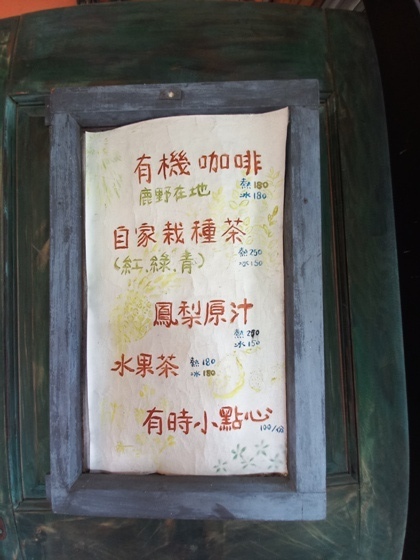 有機咖啡
鹿野在地
熱180
冰180
自家栽種茶
(紅、綠、青)
熱250
冰150
鳳梨原汁
熱200
冰150
水果茶
熱180
冰180
有時小點心
100/